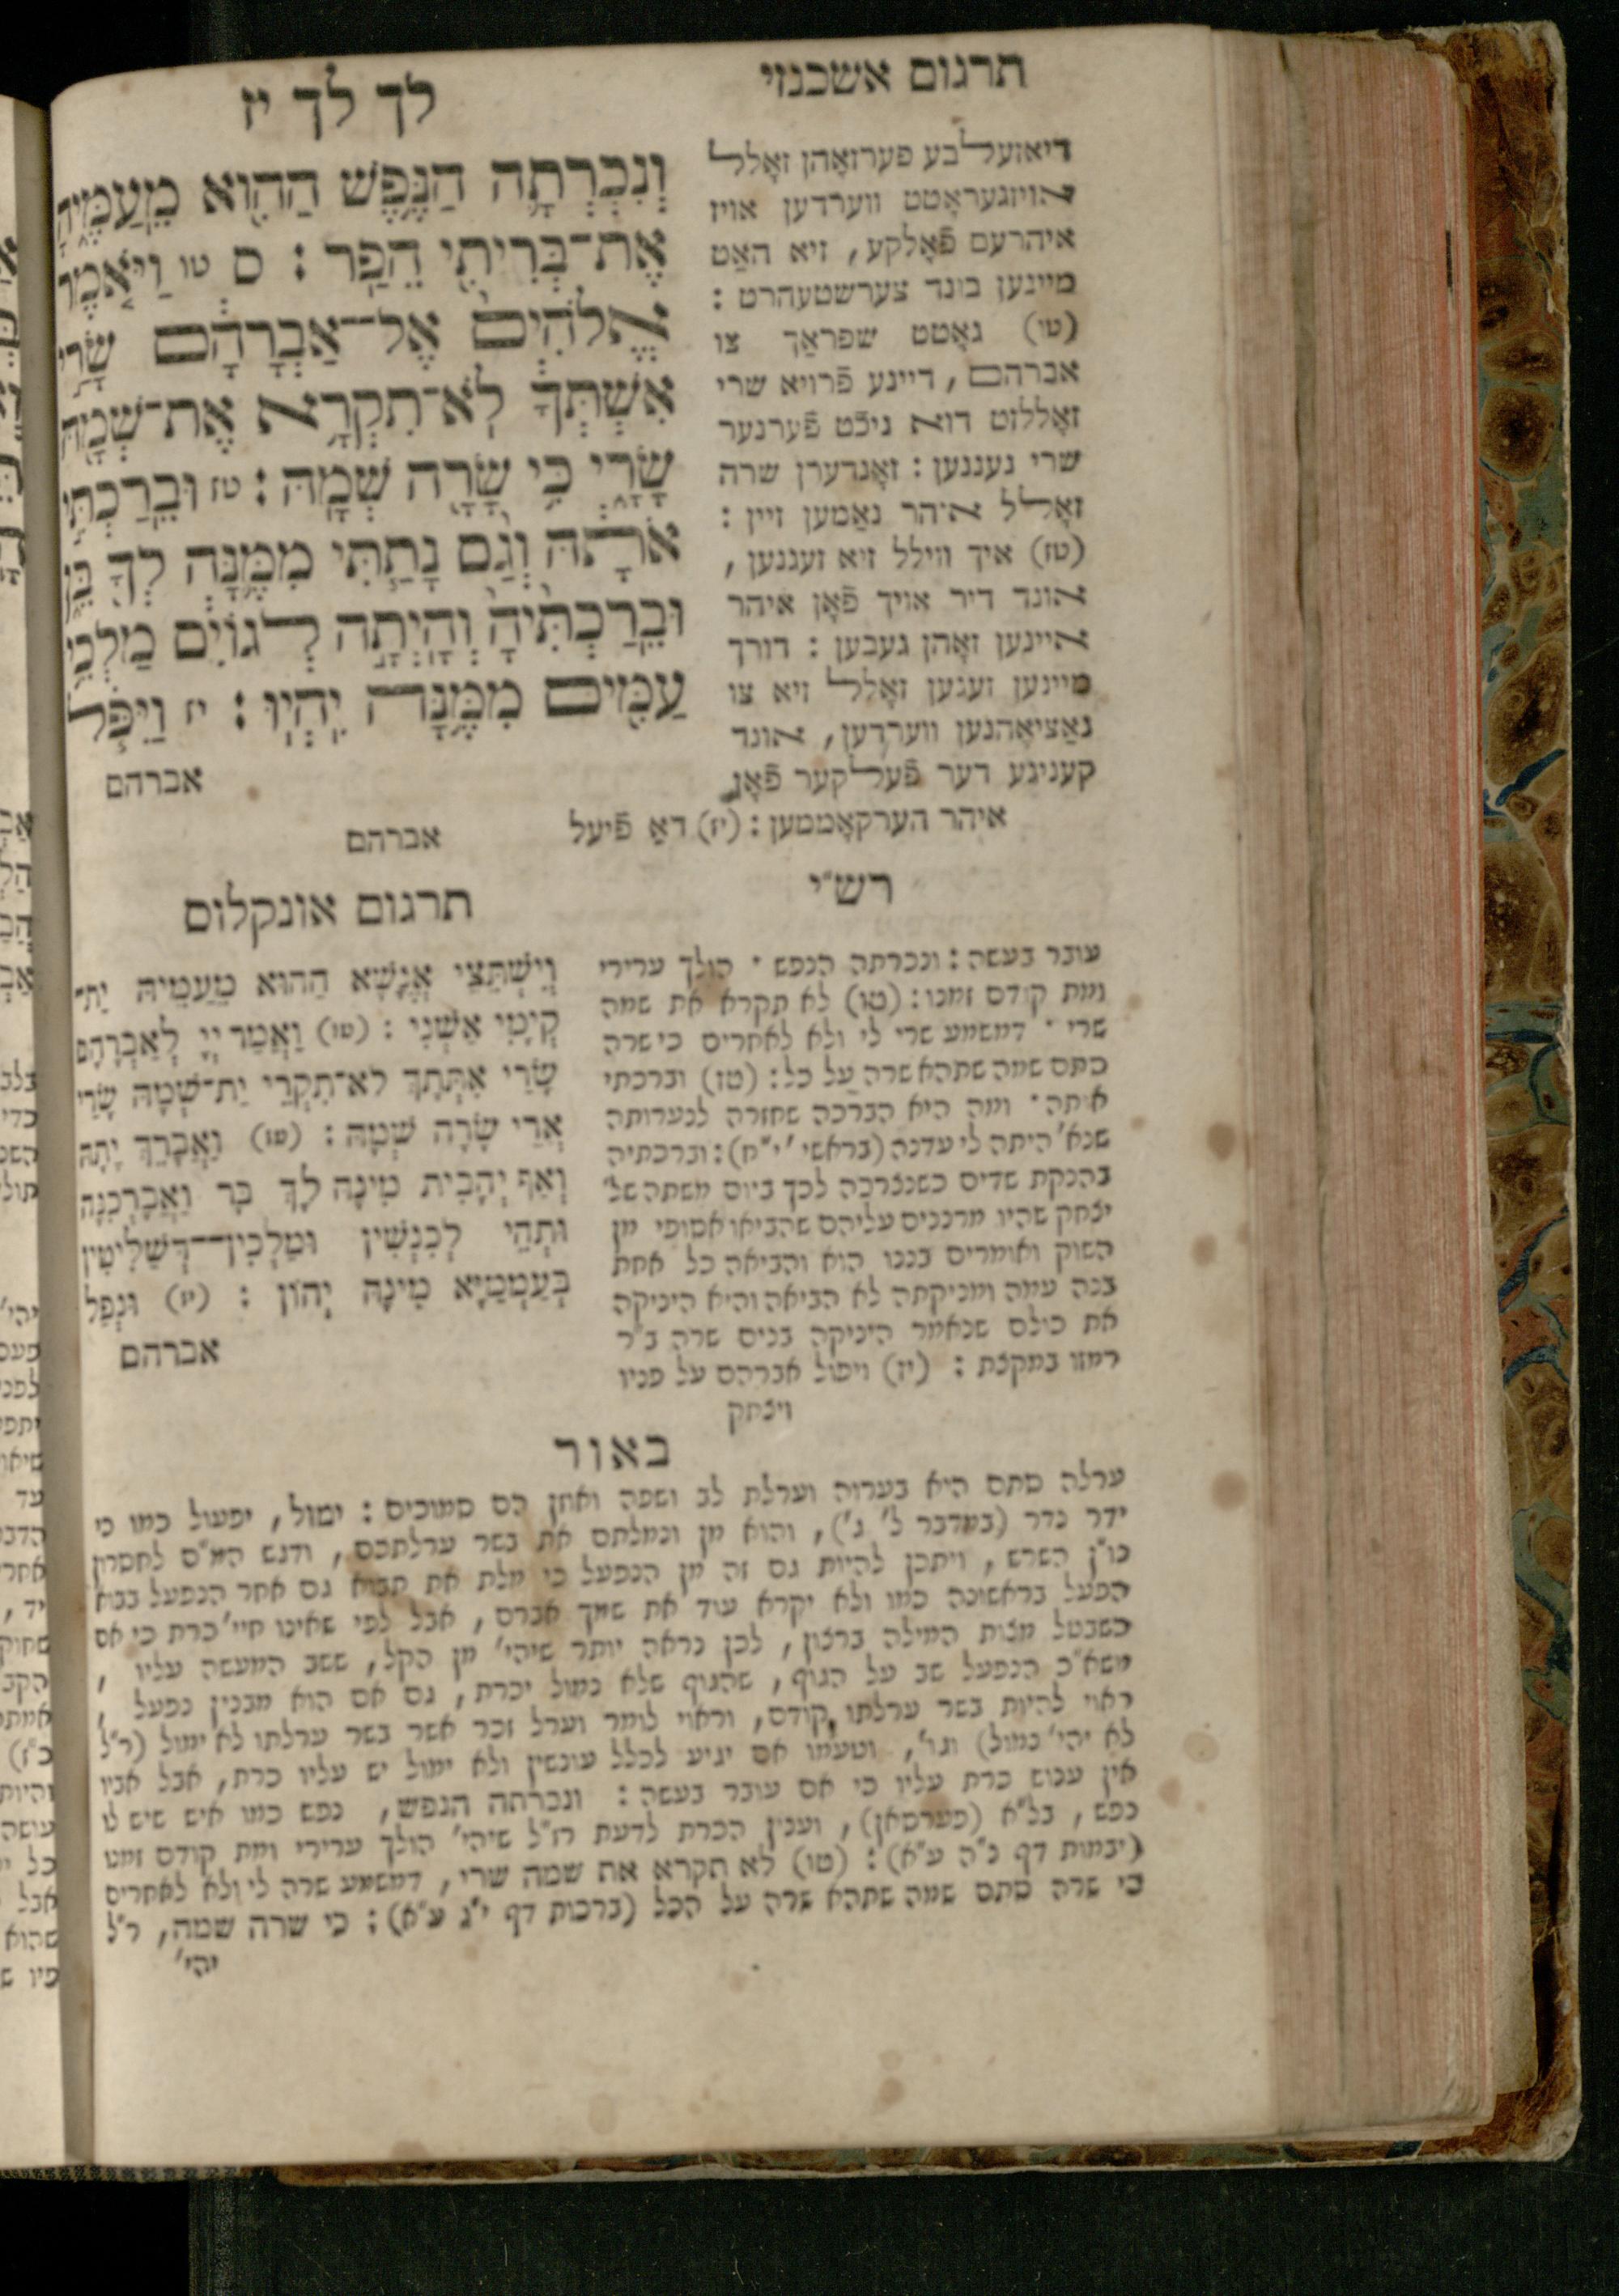 תרגום אשכנזי
לך לך יז
דיאזעלבע פערזאָהן זאָלל
אויזגעראָטט ווערדען אויז
איהרעם פֿאָלקע, זיא האַט
מיינען בונד צערשטעהרט :
(טו) גאָטט שפראַך צו
אברהם, דיינע פֿרויא שרי
זאָללזט דוא ניכֿט פֿערנער
שרי נעננען : זאָנדערן שרה
זאָלל איהר נאַמען זיין :
(טז) איך ווילל זיא זעגנען,
אונד דיר אויך פֿאָן איהר
איינען זאָהן געבען : דורך
מיינען זעגען זאָלל זיא צו
נאַציאָהנען ווערדען, אונד
קעניגע דער פֿעלקער פֿאָן
איהר הערקאָממען : (יז) דאַ פֿיעל
אברהם
וְנִכְרְתָ֛ה הַנֶּ֥פֶשׁ הַהִ֖וא מֵֽעַמֶּ֑יהָ
אֶת־בְּרִיתִ֖י הֵפַֽר : ס טו וַיֹּ֤אמֶר
אֱלֹהִים֙ אֶל־אַבְרָהָ֔ם שָׂרַ֣י
אִשְׁתְּךָ֔ לֹֽא־תִקְרָ֥א אֶת־שְׁמָ֖הּ
שָׂרָ֑י כִּ֥י שָׂרָ֖ה שְׁמָֽהּ : טז וּבֵֽרַכְתִּ֣י
אֹתָ֔הּ וְגַ֨ם נָתַ֧תִּי מִמֶּ֛נָּה לְךָ֖ בֵּ֑ן
וּבֵֽרַכְתִּ֙יהָ֙ וְהָֽיְתָ֣ה לְגוֹיִ֔ם מַלְכֵ֥י
עַמִּ֖ים מִמֶּ֥נָּה יִֽהְיֽוּ : יז וַיִּפֹּ֧ל
אברהם
רש״י
עובר בעשה : ונכרתה הנפש ־ הולך ערירי
ומת קודם זמנו : (טו) לא תקרא את שמה
שרי ־ דמשמע שרי לי ולא לאחרים כי שרה
סתם שמה שתהא שרה על כל : (טז) וברכתי
אותה ־ ומה היא הברכה שחזרה לנערותה
שנא׳ היתה לי עדנה (בראשי׳ י״ח) : וברכתיה
בהנקת שדים כשנצרכה לכך ביום משתה של
יצחק שהיו מרננים עליהם שהביאו אסופי מן
השוק ואומרים בננו הוא והביאה כל אחת
בנה עמה ומניקתה לא הביאה והיא היניקה
את כולם שנאמר היניקה בנים שרה ב״ר
רמזו במקצת : (יז) ויפול אברהם על פניו
ויצחק
תרגום אונקלוס
וְיִשְׁתֵּצֵי אֲנָשָׁא הַהוּא מֵעַמֵיהּ יַת־
קְיָמִי אַשְׁנִי : (טו) וַאֲמַר יְיָ לְאַבְרָהָם
שָׂרַי אִתְּתָךְ לא־תִקְרֵי יַת־שְׁמָהּ שָׂרָי
אֲרֵי שָׂרָה שְׁמָהּ : (טז) וַאֲבָרֵךְ יָתָהּ
וְאַף יְהָבִית מִינָהּ לָךְ בָּר וַאֲבָרְכִנָּהּ
וּתְהֵי לְכִנְשִׁין וּמַלְכִין־דְּשַׁלִיטִין
בְּעַמְמַיָּא מִינָהּ יְהוֹן : (יז) וּנְפַל
אברהם
באור
ערלה סתם היא בערוה וערלת לב ושפה ואוזן הם סמוכים : ימול, יפעול כמו כי
ידר נדר (במדבר ל׳ ג׳), והוא מן ונמלתם את בשר ערלתכם, ודגש המ״ם לחסרון
נו״ן השרש, ויתכן להיות גם זה מן הנפעל כי מלת את תבוא גם אחר הנפעל בבוא
הפעל בראשונה כמו ולא יקרא עוד את שמך אברם, אבל לפי שאינו חיי׳ כרת כי אם
כשבטל מצות המילה ברצון, לכן נראה יותר שיהי׳ מן הקל, ששב המעשה עליו,
משא״כ הנפעל שב על הגוף, שהגוף שלא נמול יכרת, גם אם הוא מבנין נפעל,
ראוי להיות בשר ערלתו קודם, וראוי לומר וערל זכר אשר בשר ערלתו לא ימול (ר״ל
לא יהי׳ נמול) וגו׳, וטעמו אם יגיע לכלל עונשין ולא ימול יש עליו כרת, אבל אביו
אין ענוש כרת עליו כי אם עובר בעשה : ונכרתה הנפש, נפש כמו איש שיש לו
נפש, בל״א (פערסאן), וענין הכרת לדעת רז״ל שיהי׳ הולך ערירי ומת קודם זמנו
(יבמות דף נ״ה ע״א) : (טו) לא תקרא את שמה שרי, דמשמע שרה לי ולא לאחרים
כי שרה סתם שמה שתהא שרה על הכל (ברכות דף י״ג ע״א) : כי שרה שמה, ר״ל
יהי׳